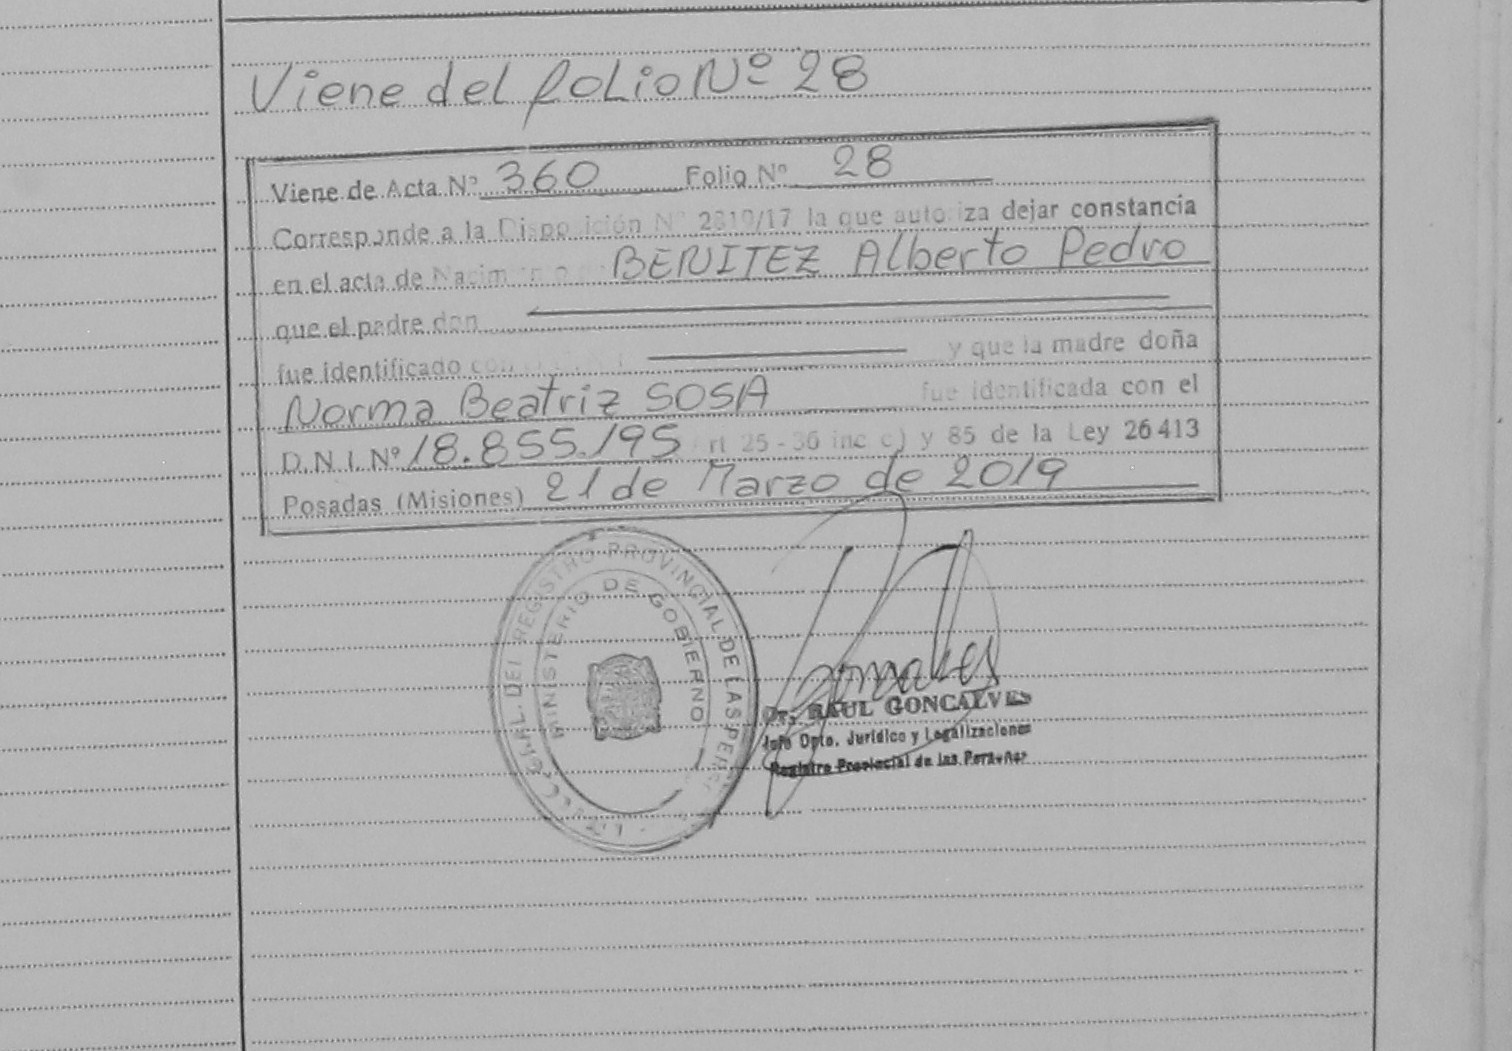 Viene del folio Nº 28
Viene de Acta Nº 360 Folio Nº 28
Corresponde a la Disposición Nº 2819/17 la que autoriza dejar constancia
en el acta de Nacimiento BENITEZ Alberto Pedro
que el padre don
fue identificado con y que la madre doña
Norma Beatriz SOSA fue identificada con el
D.N.I. Nº 18.855.195 rt 25-36 inc c) y 85 de la Ley 26413
Posadas (Misiones) 21 de Marzo de 2019
DEL REGISTRO PROVINCIAL DE LAS PER
MINISTERIO DE GOBIERNO
Goncalves
Dr. RAUL GONCALVES
Jefe Dpto. Jurídico y Legalizaciones
Registro Provincial de las Personas